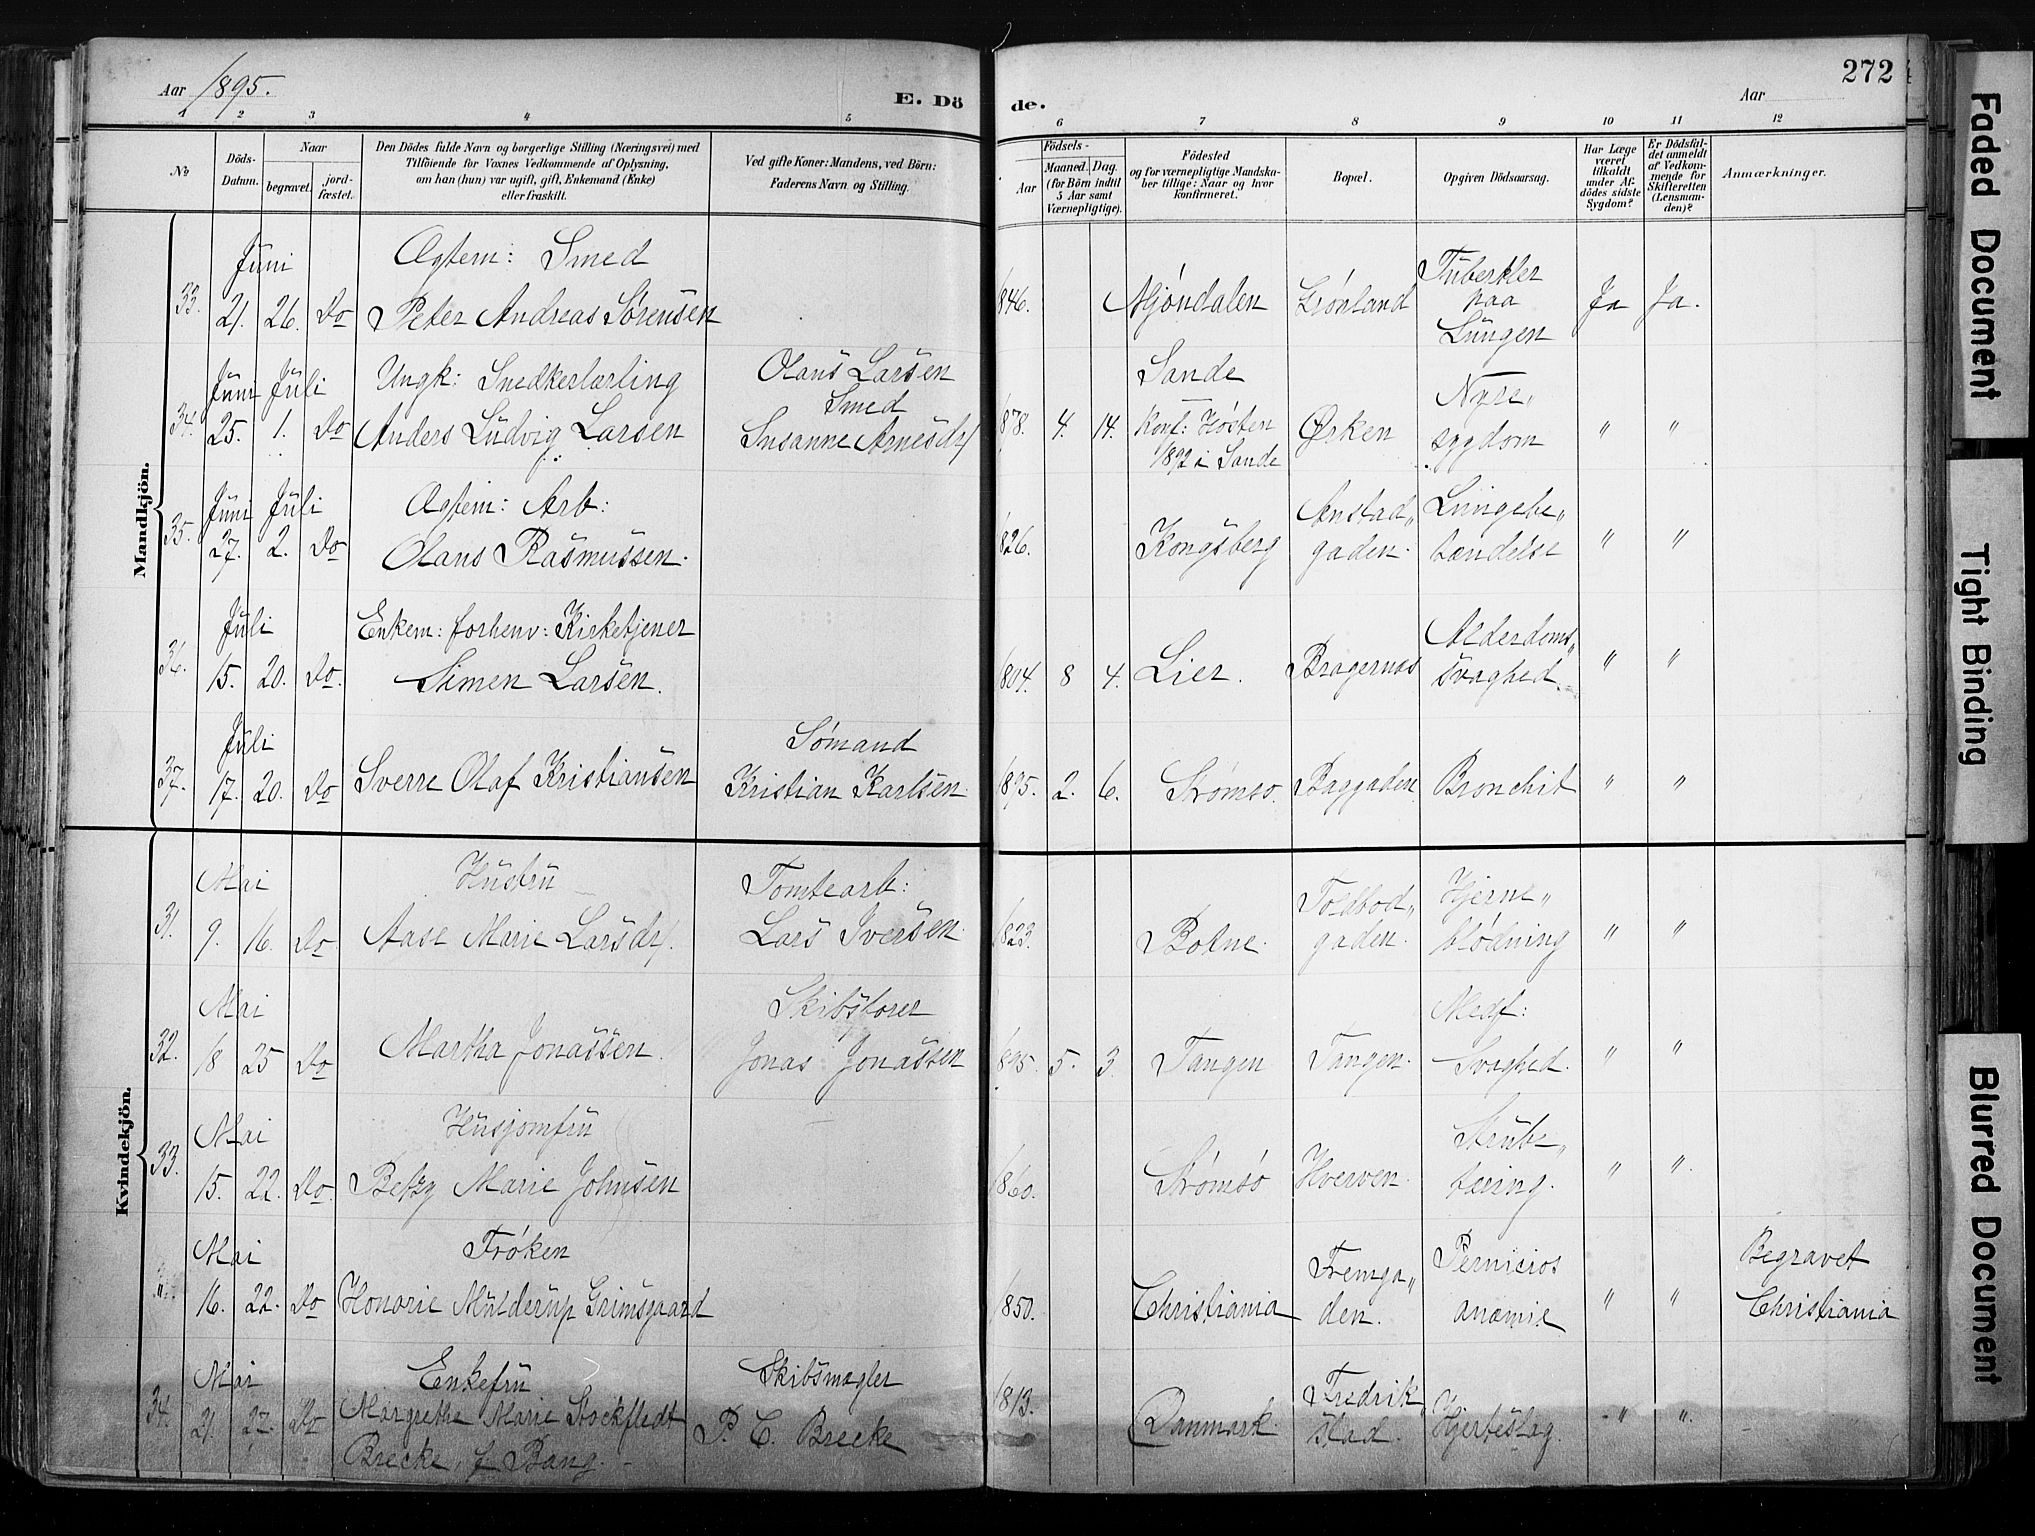 Aar 1895.
E. Dö
de.
Aar
272
1 2 3 4 5 6 7 8 9 10 11 12
No
Döds-
Datum.
Naar
begravet.
jord-
fæstet.
Den Dödes fulde Navn og borgerlige Stilling (Næringsvei) med
Tilföiende for Voxnes Vedkommende af Oplysning,
om han (hun) var ugift, gift, Enkemand (Enke)
eller fraskilt.
Ved gifte Koner: Mandens, ved Börn:
Faderens Navn og Stilling.
Födsels-
Aar
Maaned. Dag.
(for Börn indtil
5 Aar samt
Værnepligtige).
Födested
og for værnepligtige Mandska-
ber tillige: Naar og hvor
konfirmeret.
Bopæl.
Opgiven Dödsaarsag.
Har Læge
været
tilkaldt
under Af-
dödes sidste
Sygdom?
Er Dödsfal-
det anmeldt
af Vedkom-
mende for
Skifteretten
(Lensman-
den)?
Anmærkninger.
Mandkjön.
33. Juni
21. 26. Do
Ægtem: Smed
Peter Andreas Sörensen
1846. Mjöndalen Grönland
Tuberkler
paa
Lungen
Ja Ja.
34. Juni Juli
25. 1. Do
Ungk: Snedkerlærling
Anders Ludvig Larsen
Olaus Larsen
Smed
Susanne Arnesd/
1878. 4. 14.
Sande
Konf: Hösten
1892 i Sande
Ørken
Nyre,
sygdom
" "
35. Juni Juli
27. 2. Do
Ægtem: Arb:
Olaus Rasmussen.
1826. Kongsberg
Anstad„
gaden.
Lungebe„
tændelse
" "
36. Juli
15. 20. Do.
Enkem: forhenv: Kirketjener
Simen Larsen.
1804. 8 4. Lier. Bragernæs
Alderdoms„
svaghed.
" "
37. Juli
17. 20. Do
Sverre Olaf Kristiansen
Sömand
Kristian Karlsen.
1895. 2. 6. Strömsö. Baggaden. Bronchit " "
Kvindekjön.
31. Mai
9. 16. Do
Hustru
Aase Marie Larsd/.
Tomtearb:
Lars Iversen.
1823. Botne.
Toldbod„
gaden.
Hjerne„
blödning
" "
32. Mai
18 25 Do
Martha Jonassen.
Skibstorer
Jonas Jonassen
1895. 5. 3. Tangen Tangen.
Medf:
Svaghed.
" "
33. Mai
15. 22. Do.
Husjomfru
Betzy Marie Johnsen
1860. Strömsö Hverven.
Strube„
tæring.
" "
" Mai
16. 22. Do
Fröken
Honorie Mulderup Grimsgaard
1850. Christiania
Fremga„
den.
Pernicios
anæmie
" "
Begravet
Christiania
34. Mai
21. 27. Do
Enkefru
Margrethe Marie Stockfledt
Brecke, f Bang.
Skibsmægler
P. C. Brecke
1813. Danmark.
Fredrik„
stad.
Hjerteslag.
" "
Faded Document
Tight Binding
Blurred Document